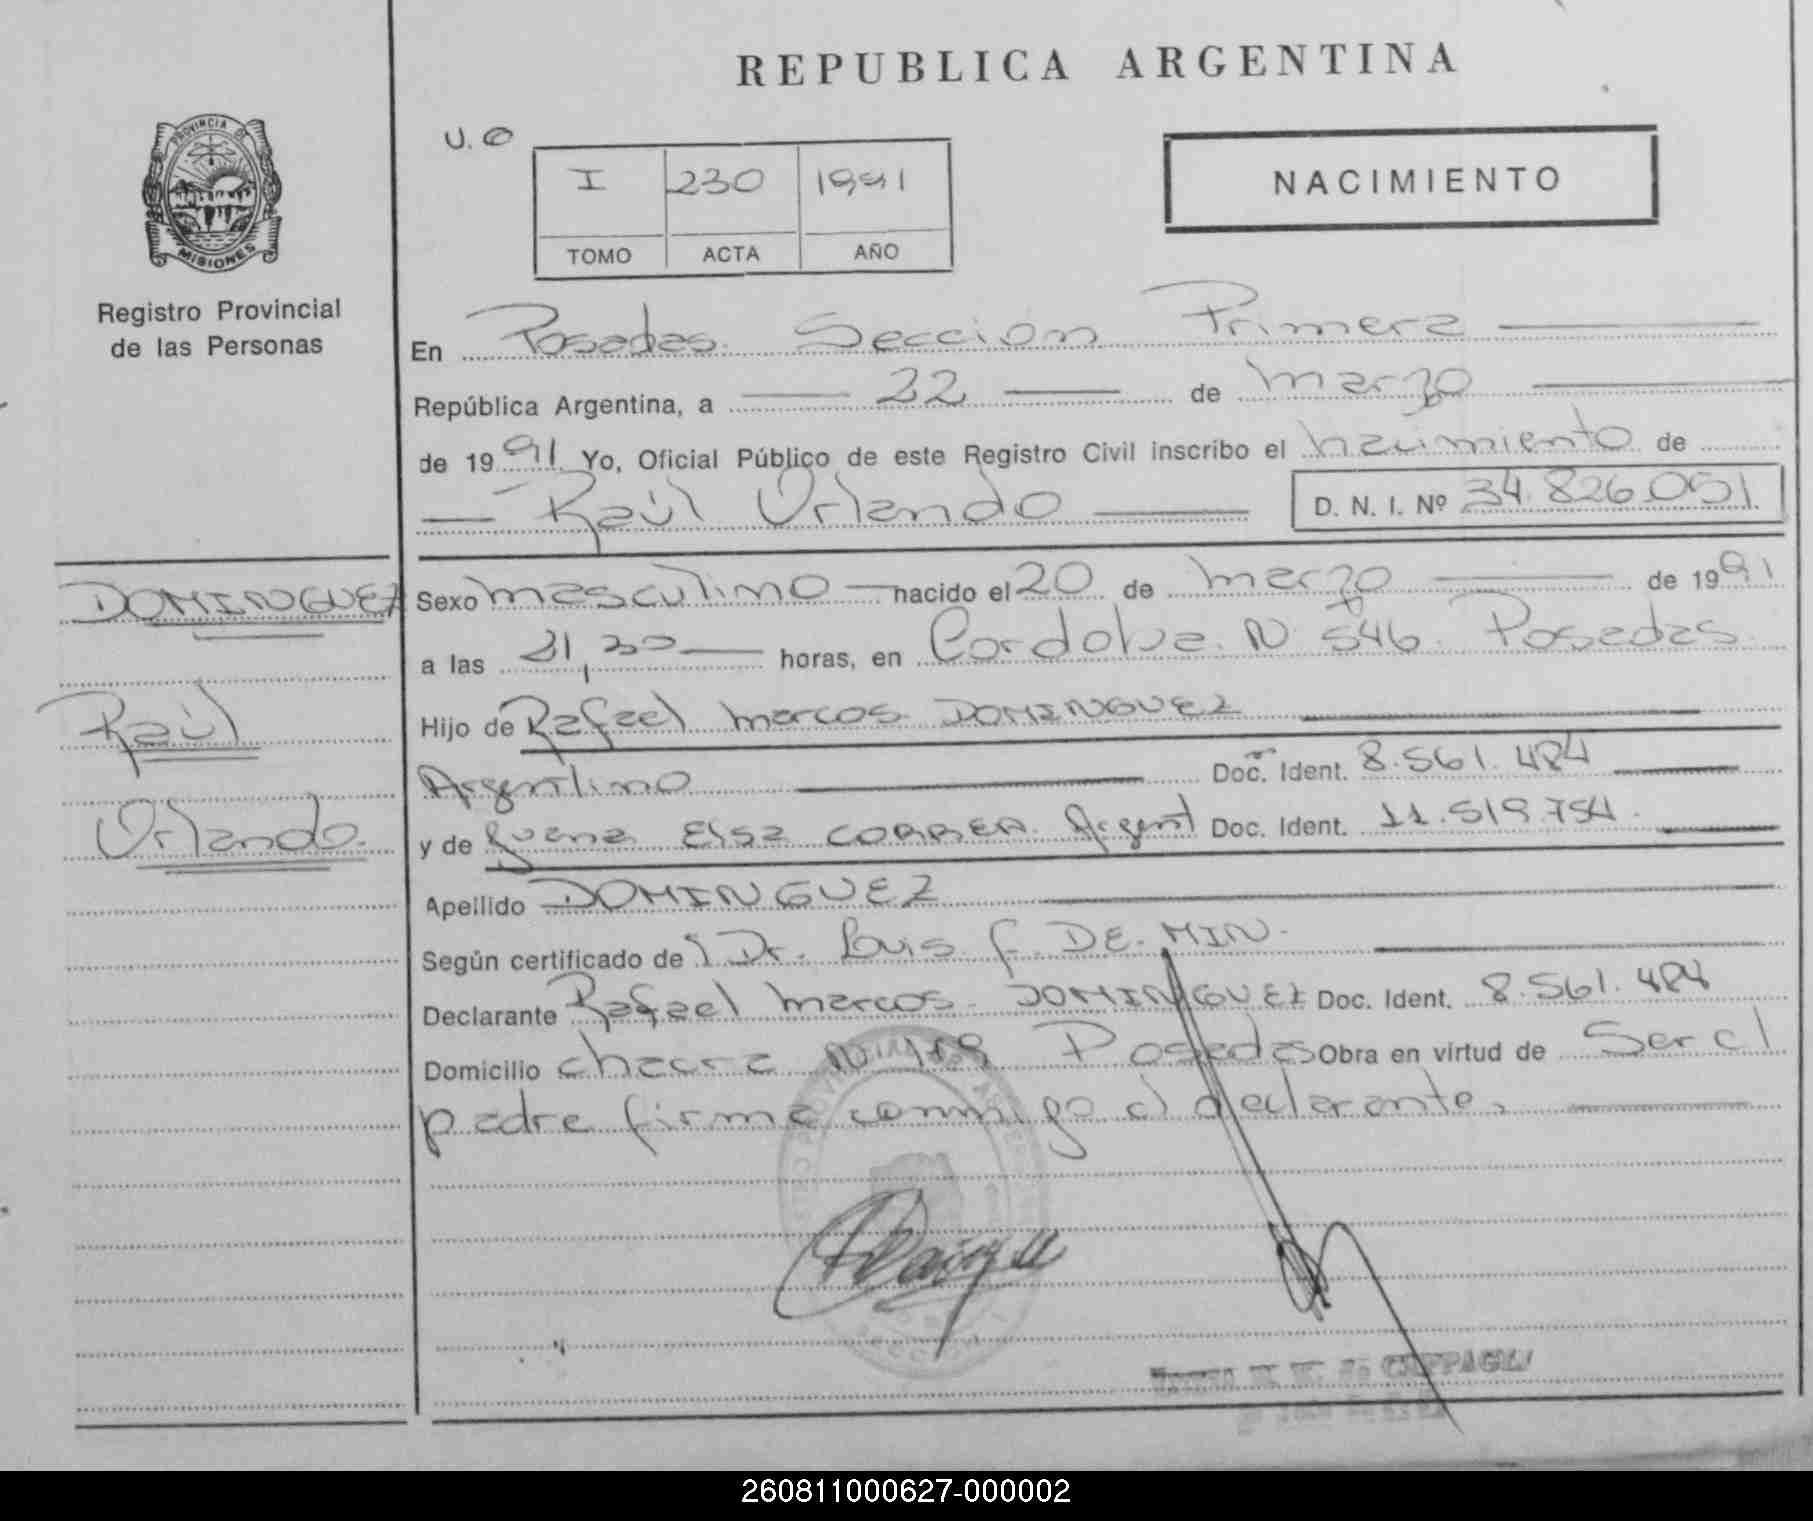 REPUBLICA ARGENTINA
PROVINCIA DE
MISIONES
Registro Provincial
de las Personas
U. O
I 230 1991
TOMO ACTA AÑO
NACIMIENTO
En Posadas. Sección Primera
República Argentina, a 22 de marzo
de 1991 Yo, Oficial Público de este Registro Civil inscribo el nacimiento de
Raúl Orlando D. N. I. Nº 34.826.051
DOMINGUEZ
Raúl
Orlando.
Sexo masculino nacido el 20 de marzo de 1991
a las horas, en Cordoba. N 546. Posadas.
Hijo de Rafael marcos DOMINGUEZ
Argentino Doc. Ident. 8.561.484
y de Juana Elsa CORREA. Argent Doc. Ident. 11.519.754.
Apellido DOMINGUEZ
Según certificado de Dr. Luis f. DE. MIN.
Declarante Rafael marcos. DOMINGUEZ Doc. Ident. 8.561.484
Domicilio chacra N Posadas Obra en virtud de Ser el
padre firma conmigo el declarante.
260811000627-000002